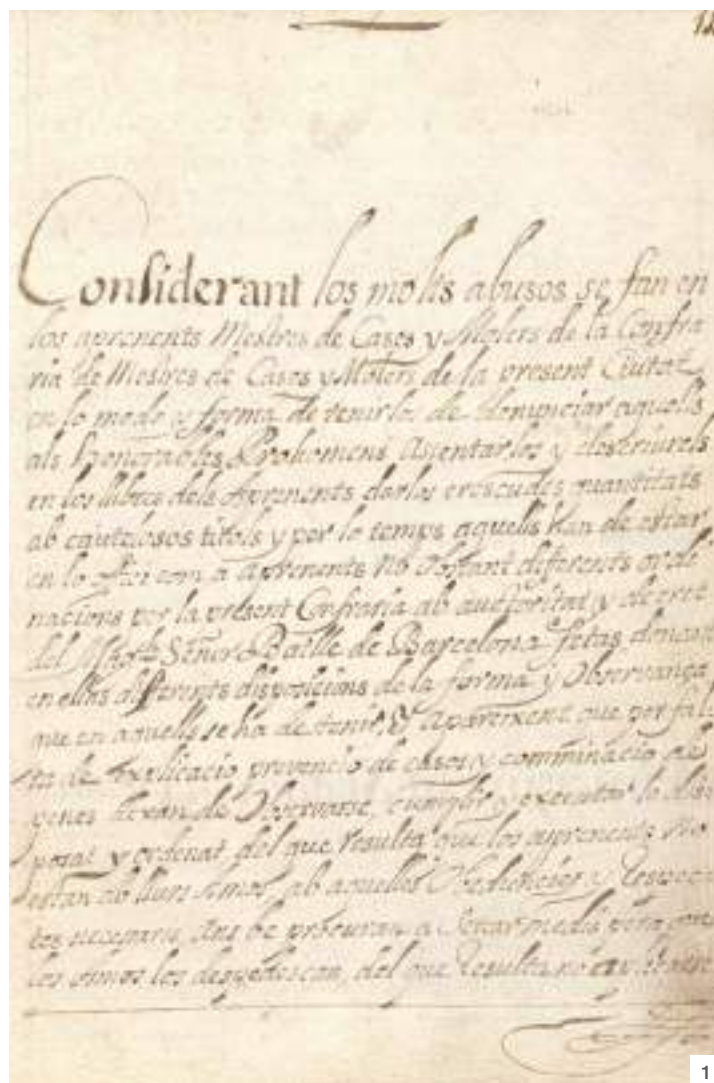 12
Considerant los molts abusos se fan en
los aprenents Mestres de Cases y Molers de la Confra
ria de Mestres de Cases y Molers de la present Ciutat
en lo modo y forma de tenirlos de denunciar aquells
als Honorables Prohomens Asentarlos y descriurels
en los llibres dels Aprenents darlos crescudes quantitats
ab cautelosos titols y per lo temps aquells han de estar
en lo offici com a aprenents no Obstant diferents orde
nacions per la present Confraria ab authoritat y decret
del Señor Batlle de Barcelona fetas donant
en ellas differents disposicions de la forma y Observança
que en aquells se ha de tenir, Y Apareixent que per fal
ta de Explicacio prevencio de casos y comminacio de
penes dexan de Observarse, cumplir y executar lo dis
posat y ordenat del que resulta que los aprenents no
estan ab llurs Amos, ab aquellas Obediencies y Respec
tes necessaris, Ans be procuran a
los Amos los despedescan, del que Resulta no
1